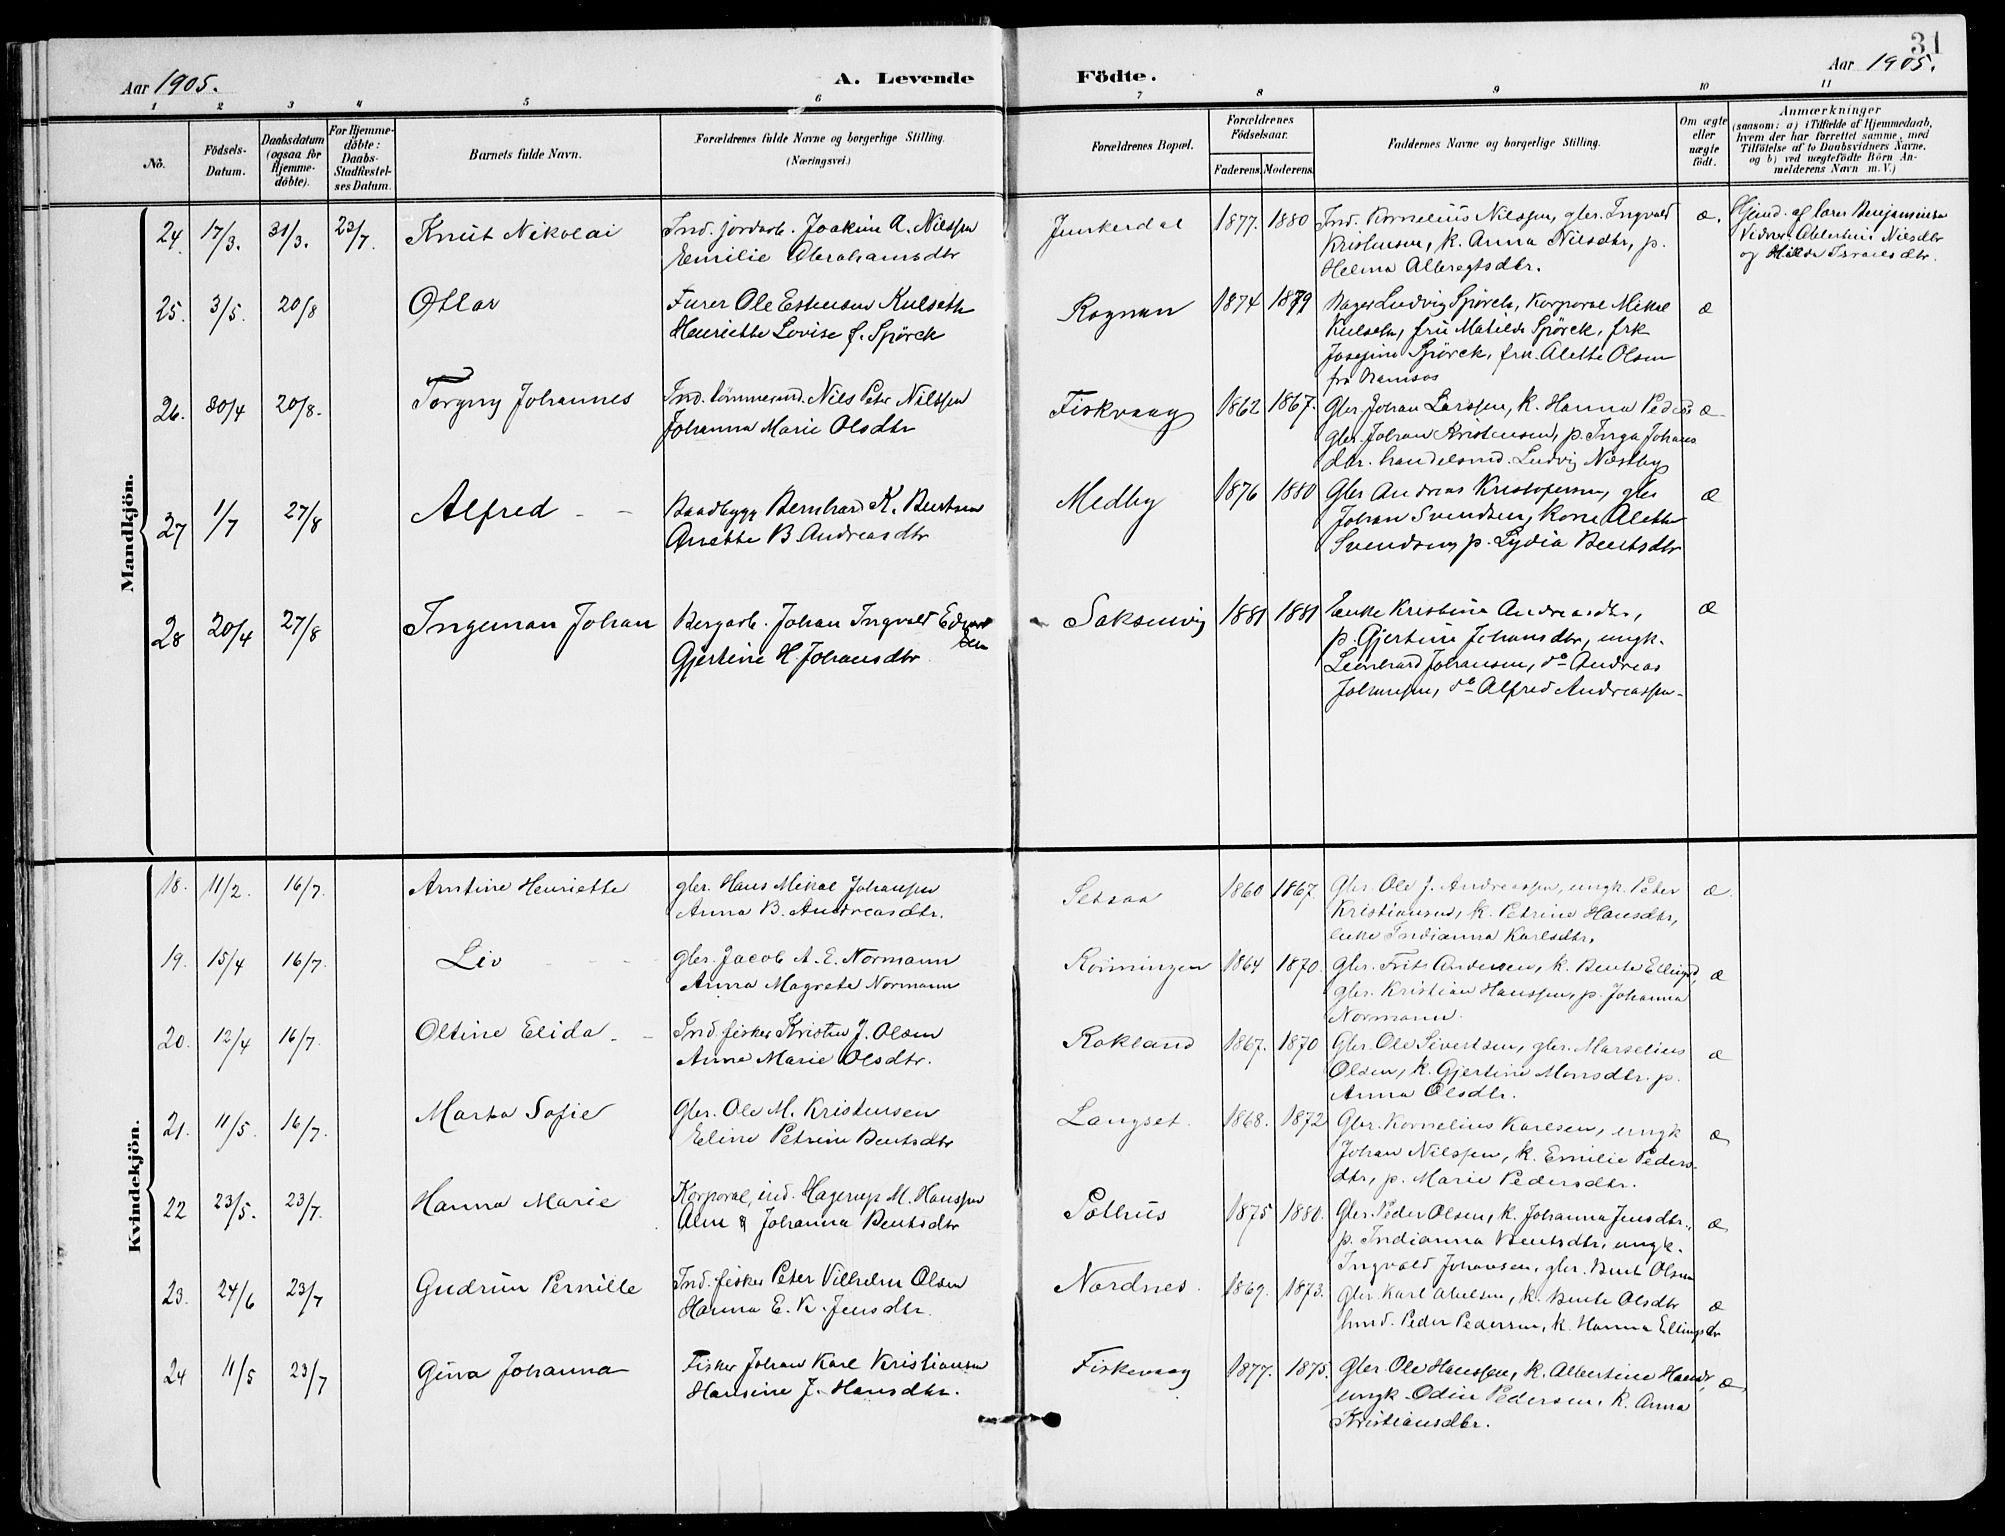 31
Aar 1905.
A. Levende
Födte.
Aar 1905.
1 2 3 4 5 6 7 8 9 10 11
Nô.
Födsels-
Datum.
Daabsdatum
(ogsaa for
Hjemme-
döbte).
For Hjemme-
döbte:
Daabs-
Stadfæstel-
ses Datum.
Barnets fulde Navn.
Forældrenes fulde Navne og borgerlige Stilling.
(Næringsvei.)
Forældrenes Bopæl.
Forældrenes
Födselsaar.
Faderens. Moderens.
Faddernes Navne og borgerlige Stilling.
Om ægte
eller
uægte
födt.
Anmærkninger
(saasom: a) i Tilfælde af Hjemmedaab,
hvem der har forrettet samme, med
Tilföielse af to Daabsvidners Navne,
og b) ved uægtefödte Börn An-
melderens Navn m. V.)
Mandkjön.
24. 17/3. 31/3. 23/7. Knut Nikolai
Ind. jordarb. Joakim A. Nilssen
Emilie Abrahamsdtr
Junkerdal 1877. 1880
Ind. Kornelius Nilssen, gbr. Ingvald
Kristensen, k. Anna Nilsdtr, p.
Helma Albregtsdtr.
æ.
Hjemd. af lærer Benjaminsen
Vidner: Albertine Nilsdtr
og Hilda Israelsdtr.
25. 3/5. 20/8 Ottar
Furer Ole Estensen Kulseth
Henriette Lovise f. Spörck
Rognan 1874 1879
Bager Ludvig Spörck, Korporal Mikal
Kulseth, fru Matilde Spörck, frk
Josefine Spörck, frk. Alette Olsen
fra Namsos
æ
26. 30/4 20/8. Torgny Johannes
Ind. tömmermd. Nils Peter Nilssen
Johanna Marie Olsdtr
Fiskvaag 1862 1867.
Gbr. Johan Larssen, k. Hanna Peders
gbr. Johan Kristensen, p. Inga Johans
dtr. handelsmd. Ludvig Næstby
æ
27 1/7 27/8 Alfred - -
Baadbygg Bernhard K. Bentsen
Anette B. Andreasdtr
Medby 1876 1880
Gbr Andreas Kristofersen, gbr
Johan Svendsen, Kone Alette
Svendsen, p. Lydia Bentsdtr
æ
28 20/4 27/8 Ingeman Johan
Bergarb. Johan Ingvald Edvard
sen
Gjertine H. Johansdtr.
Saksenvig 1881 1881
Enke Kristina Andreasdtr,
p. Gjertine Johansdtr, ungk.
Leonhard Johansen, do Andreas
Johansen, do Alfred Andreassen-
æ
Kvindekjön.
18. 11/2. 16/7. Arntine Henriette
gbr. Hans Mikal Johansen
Anna B. Andreasdtr.
Setsaa 1860 1867.
Gbr. Ole J. Andreassen, ungk. Peter
Kristiansen, k. Petrine Hansdtr,
enke Indianna Karlsdtr.
æ.
19. 15/4 16/7. Liv - - -
gbr. Jacob A. E. Normann
Anna Magrete Normann
1864 1870.
Gbr. Frits Andersen, k. Bente Ellingsd,
gbr. Kristian Hanssen, p. Johanna
Normann.
æ
20. 12/4 16/7. Oltine Elida - -
Ind. fisker Kristen J. Olsen
Anna Marie Olsdtr.
Rokland 1867. 1870
Gbr. Ole Sivertsen, gbr. Marselius
Olsen, k. Gjertine Monsdtr. p.
Anna Olsdtr.
æ
21. 11/5. 16/7. Marta Sofie
Gbr. Ole M. Kristensen
Eline Petrine Bentsdtr
Langset. 1868. 1872
Gbr. Kornelius Karlsen, ungk
Johan Nilssen, k. Emilie Peders-
dtr, p. Marie Pedersdtr.
æ
22 23/5. 23/7. Hanna Marie
Korporal, ind. Hagerup M. Hanssen
Alm & Johanna Bentsdtr
Pothus 1875 1880.
Gbr. Peder Olsen, k. Johanna Jensdtr.,
p. Indianna Bentsdtr, ungk.
Ingvald Johansen, gbr. Bent Olsen
æ
23. 24/6 23/7 Gudrun Pernille
Ind. fisker Peter Vilhelm Olsen
Hanna E. K. Jensdtr.
Nordnes. 1869. 1873.
Gbr. Karl Abelsen, k. Bente Olsdtr
Ind. Peder Pedersen, k. Hanna Ellingsdtr
æ
24 11/5 23/7 Gina Johanna
Fisker Johan Karl Kristiansen
Hansine J. Hansdtr.
Fiskevaag 1877. 1875.
Gbr. Ole Hanssen, k. Albertine Hansdr,
ungk. Odin Pedersen, k. Anna
Kristiansdtr.
æ